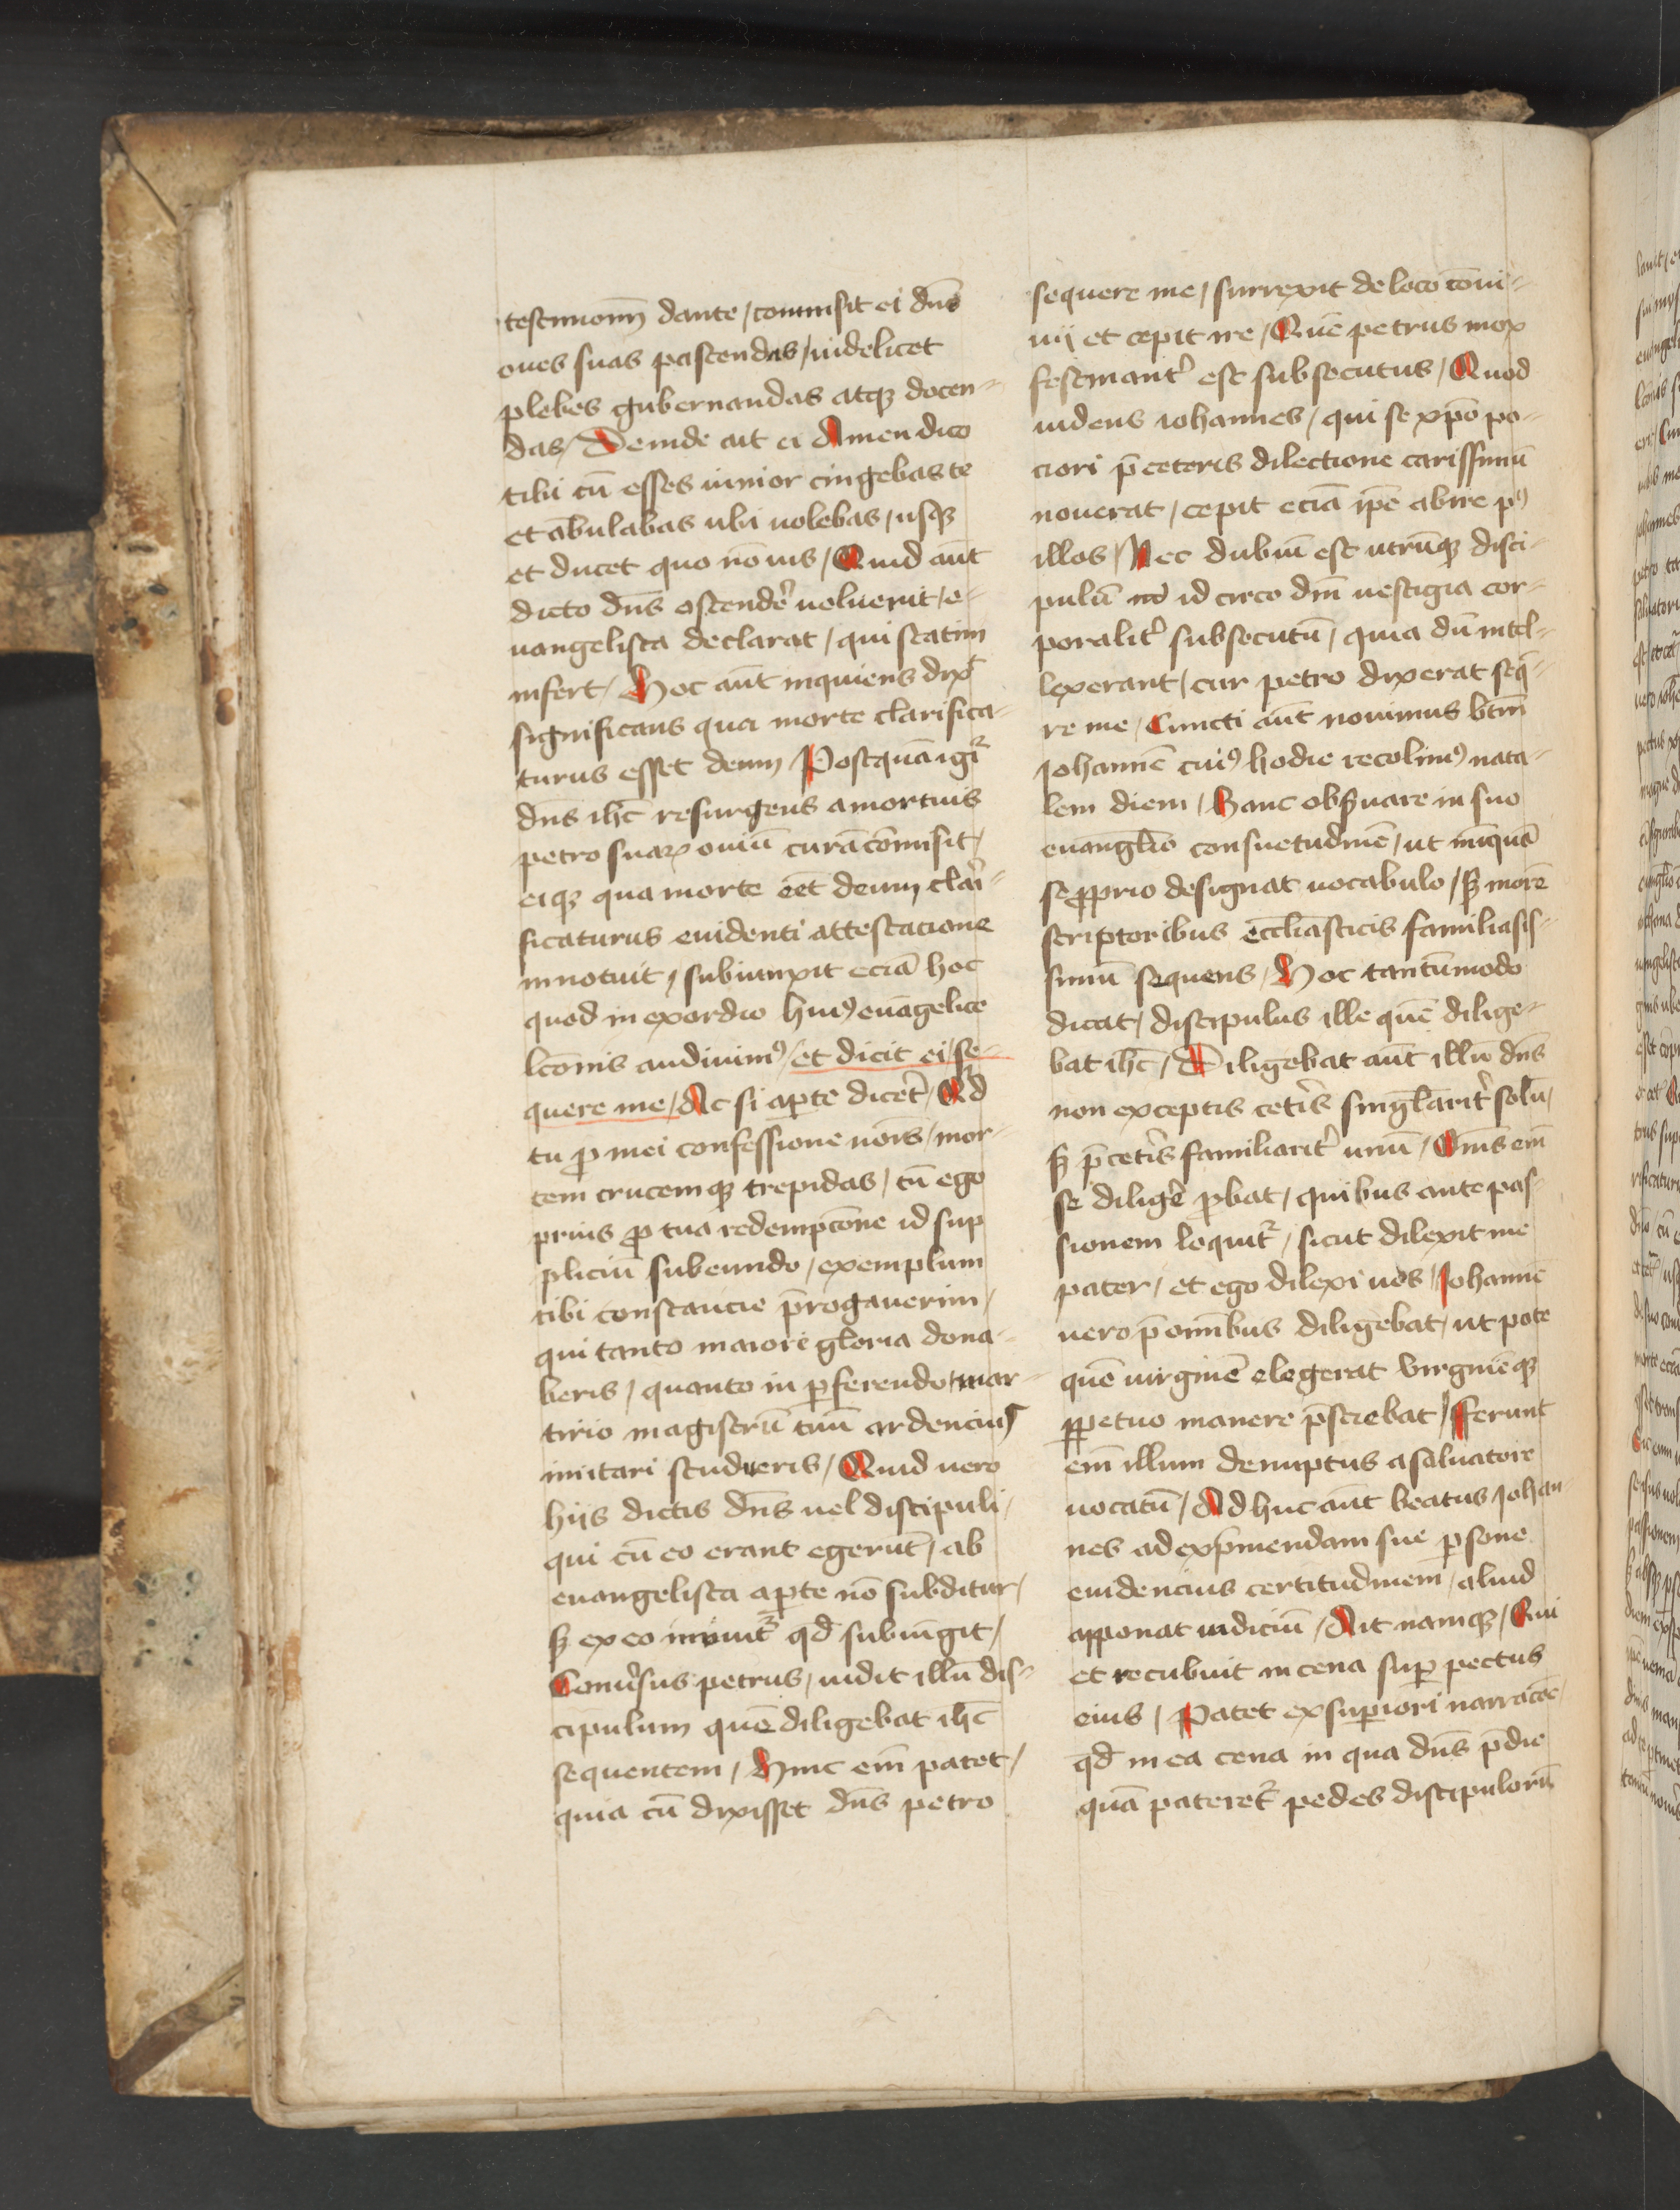 testimoniū dante / commisit ei dn̄s
oues suas pascendas / uidelicet
plebes gubernandas atqꝫ docen-
das / Deinde ait ei Amen dico
tibi cū esses iunior cingebas te
et ābulabas ubi uolebas / usqꝫ
et ducet quo nō uis / Quid aūt
dicto dn̄s ostende᷒ uoluerit / e-
uangelista declarat / qui statim
infert / Hoc aūt inquiens dix̄
significans qua morte clarifica-
turus esset deum / Postquā igr̄
dn̄s ihc̄ resurgens a mortuis
petro suaꝝ ouiū curā cōmisit /
eiqꝫ qua morte eēt deum clari-
ficaturus euidenti attestacione
innotuit / subiunxit eciā hoc
quod in exordio huiꝰ euāgelice
lcōnis audiuimꝰ / et dicit ei / se-
quere me / Ac si aꝑte dicer̄t / Qd̄
tu ꝓ mei confessione nōis / mor-
tem crucemqꝫ trepidas / cū ego
prius ꝓ tua redempcōne id sup
pliciū subeundo / exemplum
tibi constancie p̄rogauerim /
qui tanto maiore gloria dona-
beris / quanto in ꝑferendo mar-
tirio magistrū tuū ardencius
imitari studueris / Quid uero
hijs dictis dn̄s uel discipuli /
qui cū eo erant egerūt / ab
euangelista aꝑte nō subditur /
sꝫ ex eo innuit᷑ qd̄ subiūgit /
Conu᷒sus petrus / uidit illū dis-
cipulum quē diligebat ihc̄
sequentem / Hinc em̄ patet /
quia cū dixisset dn̄s petro
sequere me / surrexit de loco cōui-
uij et cepit ire / Quē petrus mox
festinant᷒ est subsecutus / Quod
uidens iohannes / qui se xp̄o po-
ciori p̄ ceteris dilectione carissimū
nouerat / cepit eciā ip̄e abire pꝰ
illos / Nec dubiū est utrūqꝫ disci-
pulū id circo dn̄i uestigia cor-
poralit᷒ subsecutū / quia dū intel-
lexerant / cur petro dixerat seq̄-
re me / Cuncti aūt nouimus btm̄
Johannē cuiꝰ hodie recolimꝰ nata-
lem diem / Hanc obseruare in suo
euangl̄io consuetudinē / ut nūquā
se ꝓprio designat uocabulo / sꝫ morē
scriptoribus eccl̄iasticis familiaris-
simū sequens / Hoc tantūmodo
dicat / discipulus ille quē dilige-
bat ihc̄ / Diligebat aūt illū dn̄s
non exceptis cet᷒is singl̄arit᷒ solū /
sꝫ p̄ cet᷒is familiarit᷒ unū / Om̄s em̄
se dilig᷒e ꝓbat / quibus ante pas-
sionem loquit᷑ / sicut dilexit me
pater / et ego dilexi uos / Johannē
uero p̄ om̄ibus diligebat / ut pote
quē uirginē elegerat uirginēqꝫ
ꝑpetuo manere p̄sciebat / fferunt
em̄ illum de nuptus a saluatore
uocatū / Ad huc aūt beatus Johan-
nes ad exp̄mendam sue ꝑsone
euidencius certitudinem / aliud
apponat iudiciū / Ait namqꝫ / Qui
et recubuit in cena suꝑ pectus
eius / Patet ex suꝑiori narracōe /
qd̄ in ea cena in qua dn̄s p̄die
quā pateret᷑ pedes discipulorū